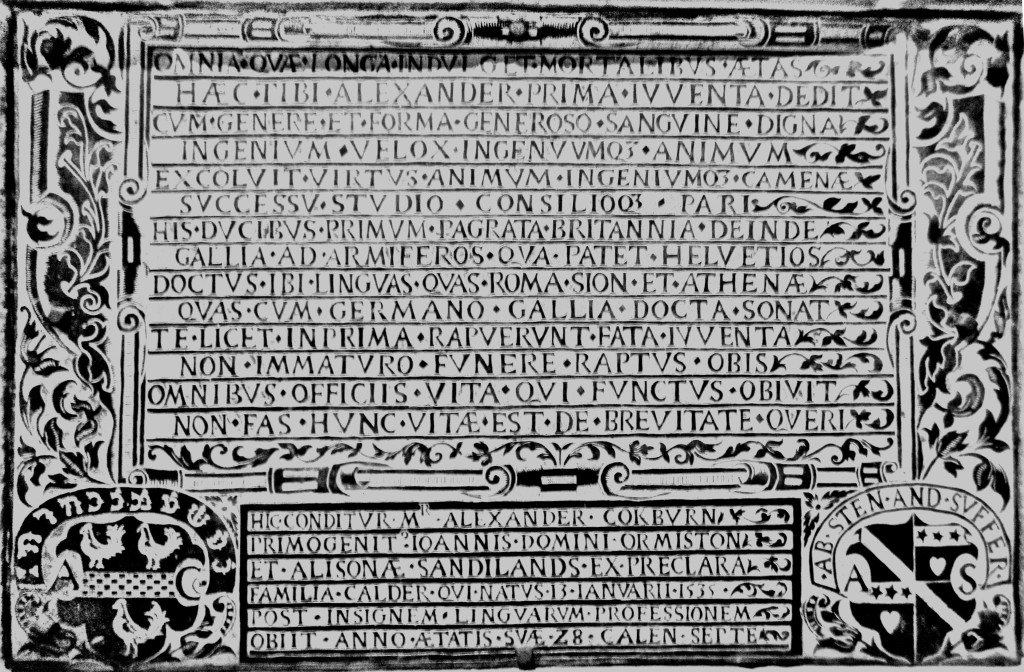 OMNIA·QVÆ·LONGA·INDVLGET·MORTALIBVS·ÆTAS
HÆC·TIBI·ALEXANDER·PRIMA·IVVENTA·DEDIT
CVM·GENERE·ET·FORMA·GENEROSO·SANGVINE·DIGNA
INGENIVM·VELOX·INGENVVMQ3·ANIMVM
EXCOLVIT·VIRTVS·ANIMVM·INGENIVMQ3·CAMENÆ
SVCCESSV·STVDIO·CONSILIOQ3·PARI
HIS·DVCIBVS·PRIMVM·PAGRATA·BRITANNIA·DEINDE
GALLIA·AD·ARMIFEROS·QVA·PATET·HELVETIOS
DOCTVS·IBI·LINGVAS·QVAS·ROMA·SION·ET·ATHENÆ
QVAS·CVM·GERMANO·GALLIA·DOCTA·SONAT
TE·LICET·INPRIMA·RAPVERVNT·FATA·IVVENTA
NON·IMMATVRO·FVNERE·RAPTVS·OBIS
OMNIBVS·OFFICIIS·VITA·QVI·FVNCTVS·OBIVIT
NON·FAS·HVNC·VITÆ·EST·DE·BREVITATE·QVERI
HIC·CONDITVR·Mʳ·ALEXANDER·COKBVRN
PRIMOGENITꝰ·IOANNIS·DOMINI·ORMISTON
ET·ALISONÆ·SANDILANDS·EX·PRECLARA
FAMILIA·CALDER·QVI·NATVS·13·IANVARII·1535
POST·INSIGNEM·LINGVARVM·PROFESSIONEM
OBIIT·ANNO·ÆTATIS·SVÆ·28·CALEN·SEPTE
A
C
·AB·STEN·AND·SVFFER·
A
S